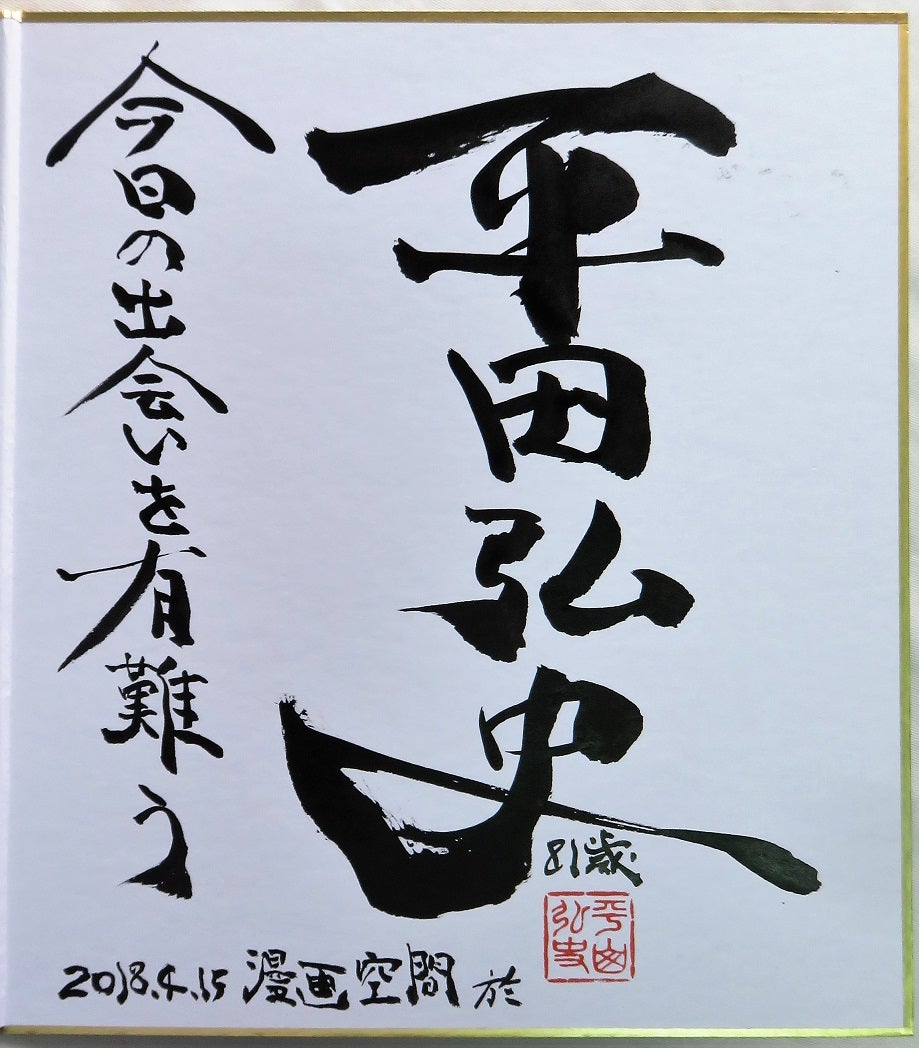 平田弘史
81歳
平田弘史
今日の出会いを有難う
2018.4.15 漫画空間 於